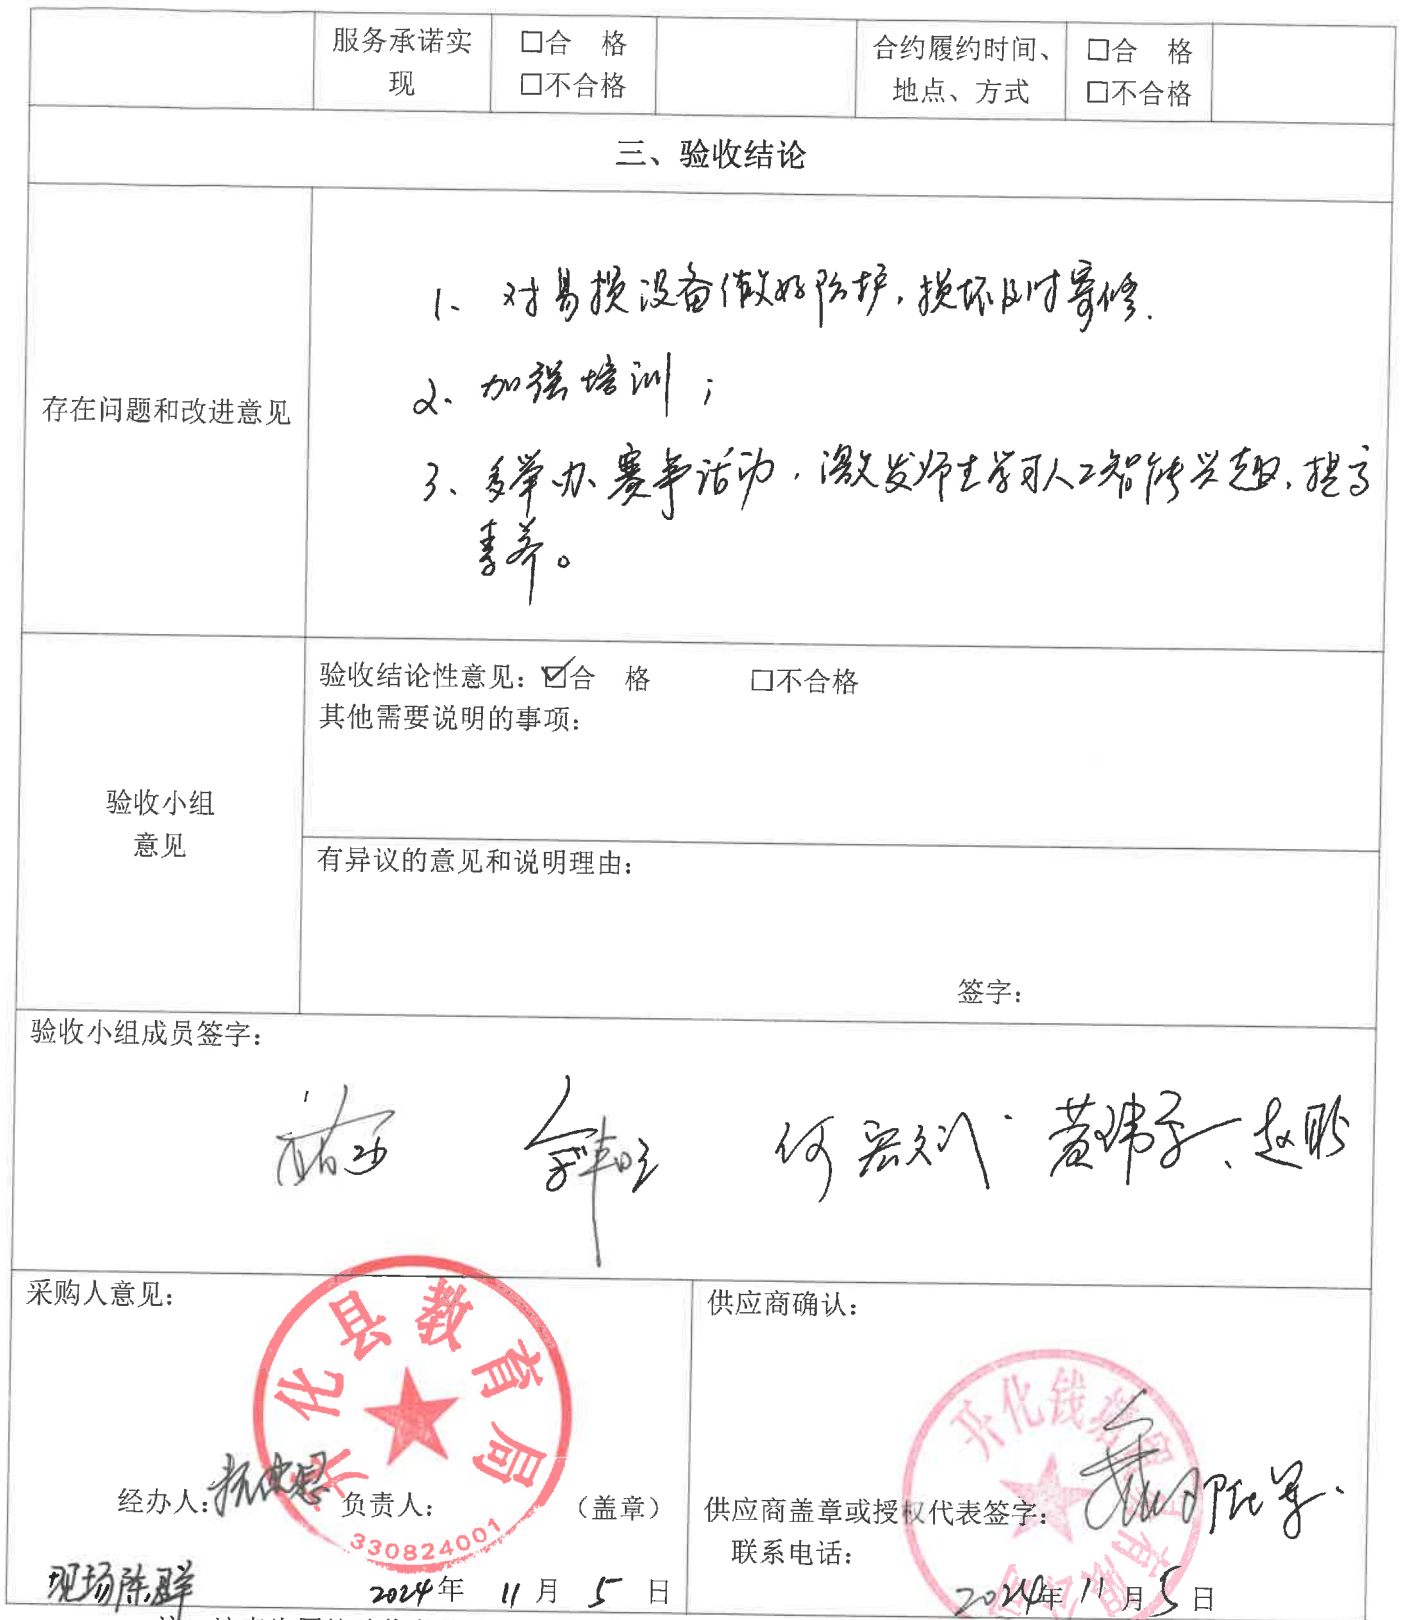 服务承诺实现 □合 格 □不合格 合约履约时间、地点、方式 □合 格 □不合格
三、验收结论
存在问题和改进意见
1、对易损设备做好防护,损坏及时寄修.
2、加强培训;
3、多举办赛事活动,激发师生学习人工智能兴趣,提高
素养。
验收小组
意见
验收结论性意见:☑合 格 □不合格
其他需要说明的事项:
有异议的意见和说明理由:
签字:
验收小组成员签字:
何宏斌 黄玮 赵
采购人意见:
开化县教育局
经办人: 负责人: (盖章)
330824001
现场陈群
2024年 11月 5日
供应商确认:
开化钱 有 公司
供应商盖章或授权代表签字:
联系电话:
2024年 11月 5日